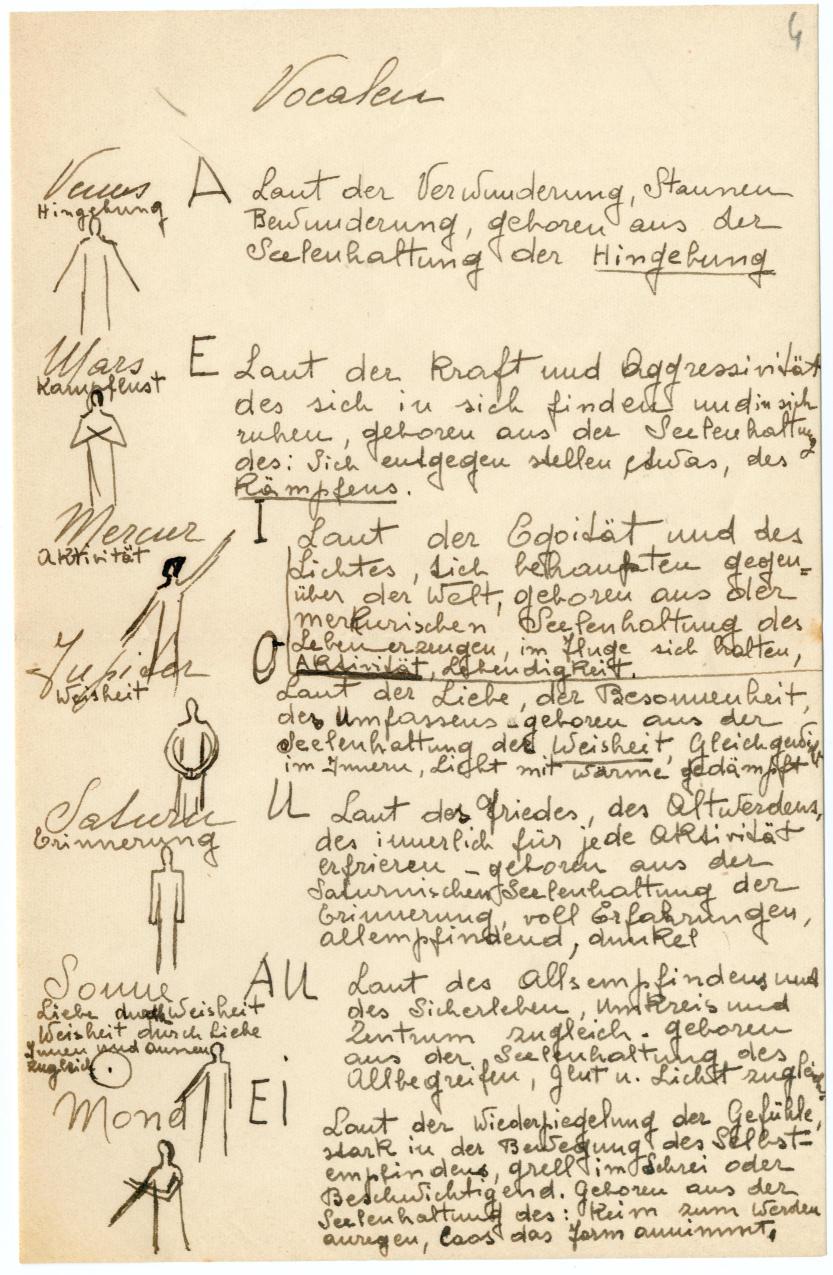 4
Vocalen
Venus
Hingebung
A Laut der Verwunderung, Staunen
Bewunderung, geboren aus der
Seelenhaltung der Hingebung
Mars
Kampflust
E Laut der Kraft und Aggressivität
des sich in sich finden und in sich
ruhen, geboren aus der Seelenhaltung
des: Sich entgegen stellen etwas, des
Kämpfens.
Mercur
Aktivität
I Laut der Egoität und des
Lichtes, sich behaupten gegen=
über der Welt, geboren aus der
merkurischen Seelenhaltung des
Leben erzeugen, im Fluge sich halten,
Aktivität, Lebendigkeit.
Jupiter
Weisheit
O Laut der Liebe, der Besonnenheit,
des Umfassens - geboren aus der
Seelenhaltung der Weisheit,
im Innern, Licht mit Wärme gedämpft
Saturn
Erinnerung
U Laut des Friedes, des Altwerdens,
des innerlich für jede Aktivität
erfrieren - geboren aus der
Saturnischen Seelenhaltung der
Erinnerung, voll Erfahrungen,
allempfindend, dunkel
Sonne
Liebe durch Weisheit
Weisheit durch Liebe
Innen und aussen
zugleich
AU Laut des Allsempfindens und
des Sicherleben, Umkreis und
Zentrum zugleich. Geboren
aus der Seelenhaltung des
Allbegreifen, Glut u. Licht zugleich
Mond
Ei Laut der Wiederpiegelung der Gefühle,
stark in der Bewegung des Selbst=
empfindens, grell im Schrei oder
Beschwichtigend. Geboren aus der
Seelenhaltung des: Keim zum Werden
anregen, Caos das Form annimmt.